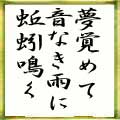 夢覚めて
音なき雨に
蚯蚓鳴く